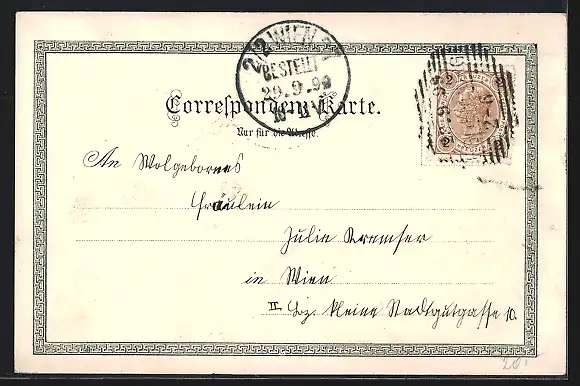 2/2 WIEN 2/2
BESTELLT
29.9.99
Correspondenz-Karte.
Nur für die Adresse.
An Wolgebornes
Fräulein
Julie Kremser
in Wien
II. Bez. kleine Stadtgutgasse 10.
20.-